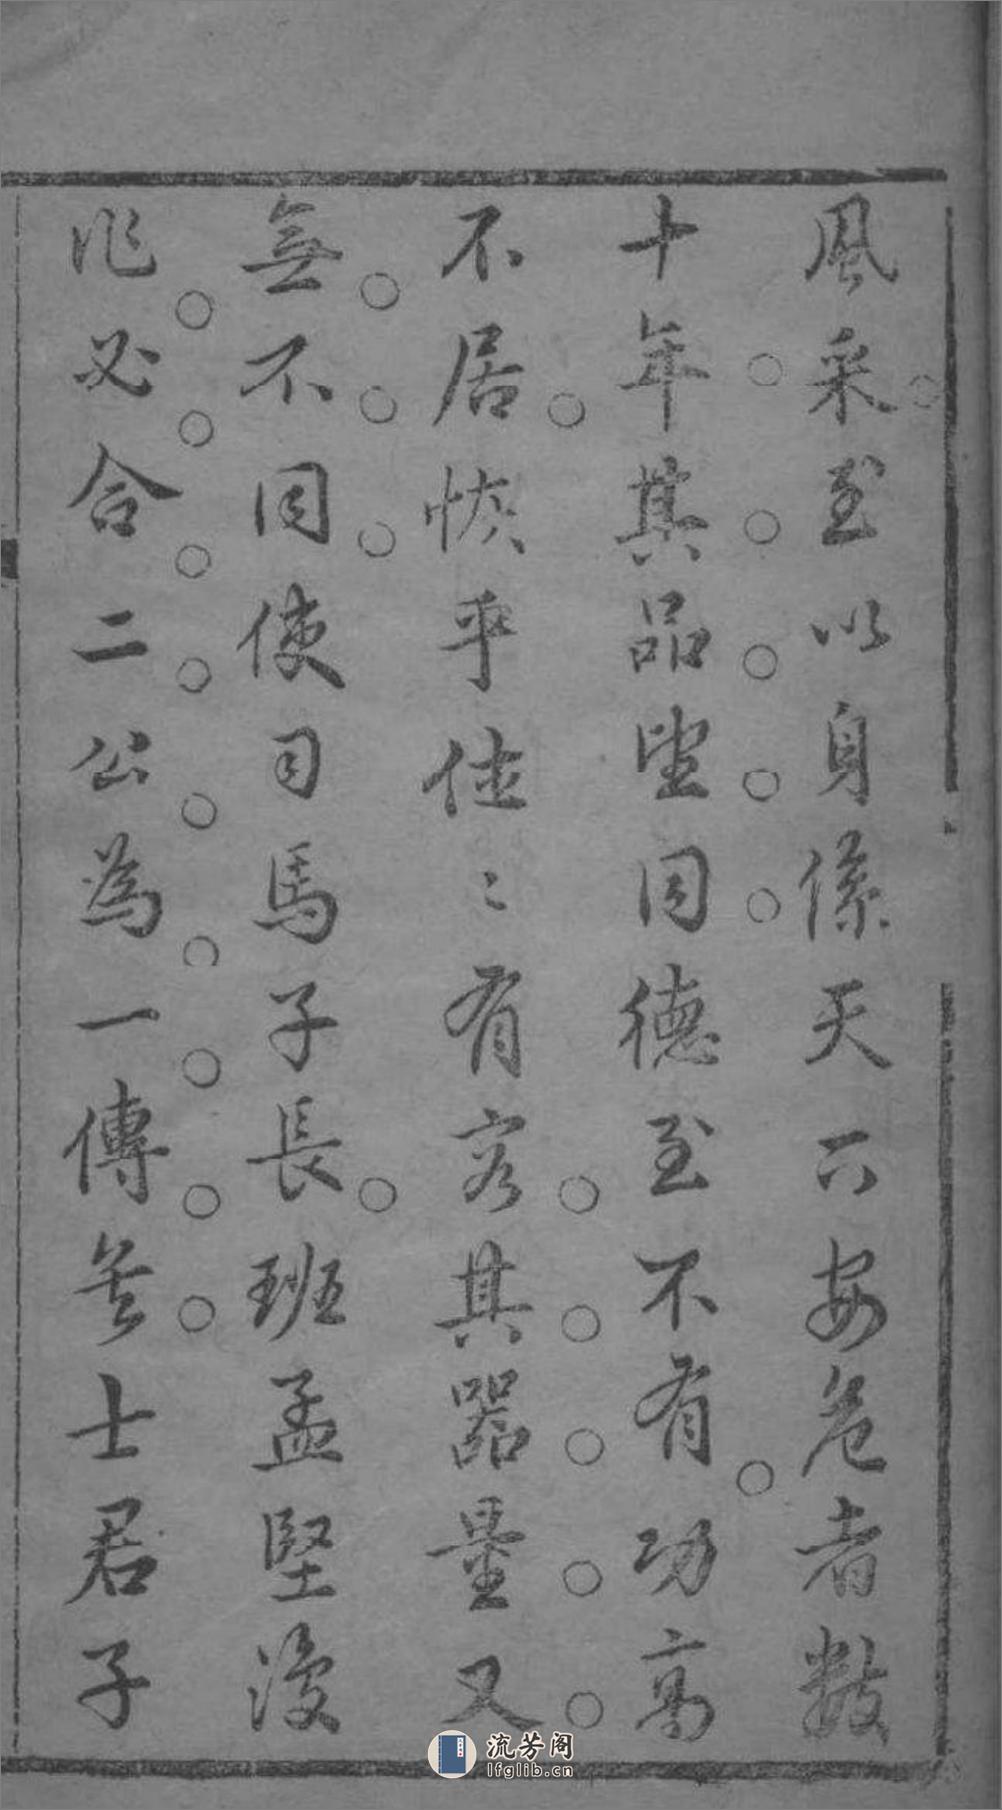 風采至以身係天下安危者數
十年其品望同德至不有功高
不居恢乎位〻有容其器量又
無不同使司馬子長班孟堅復
作必合二公為一傳矣士君子
流芳阁
lfglib.cn